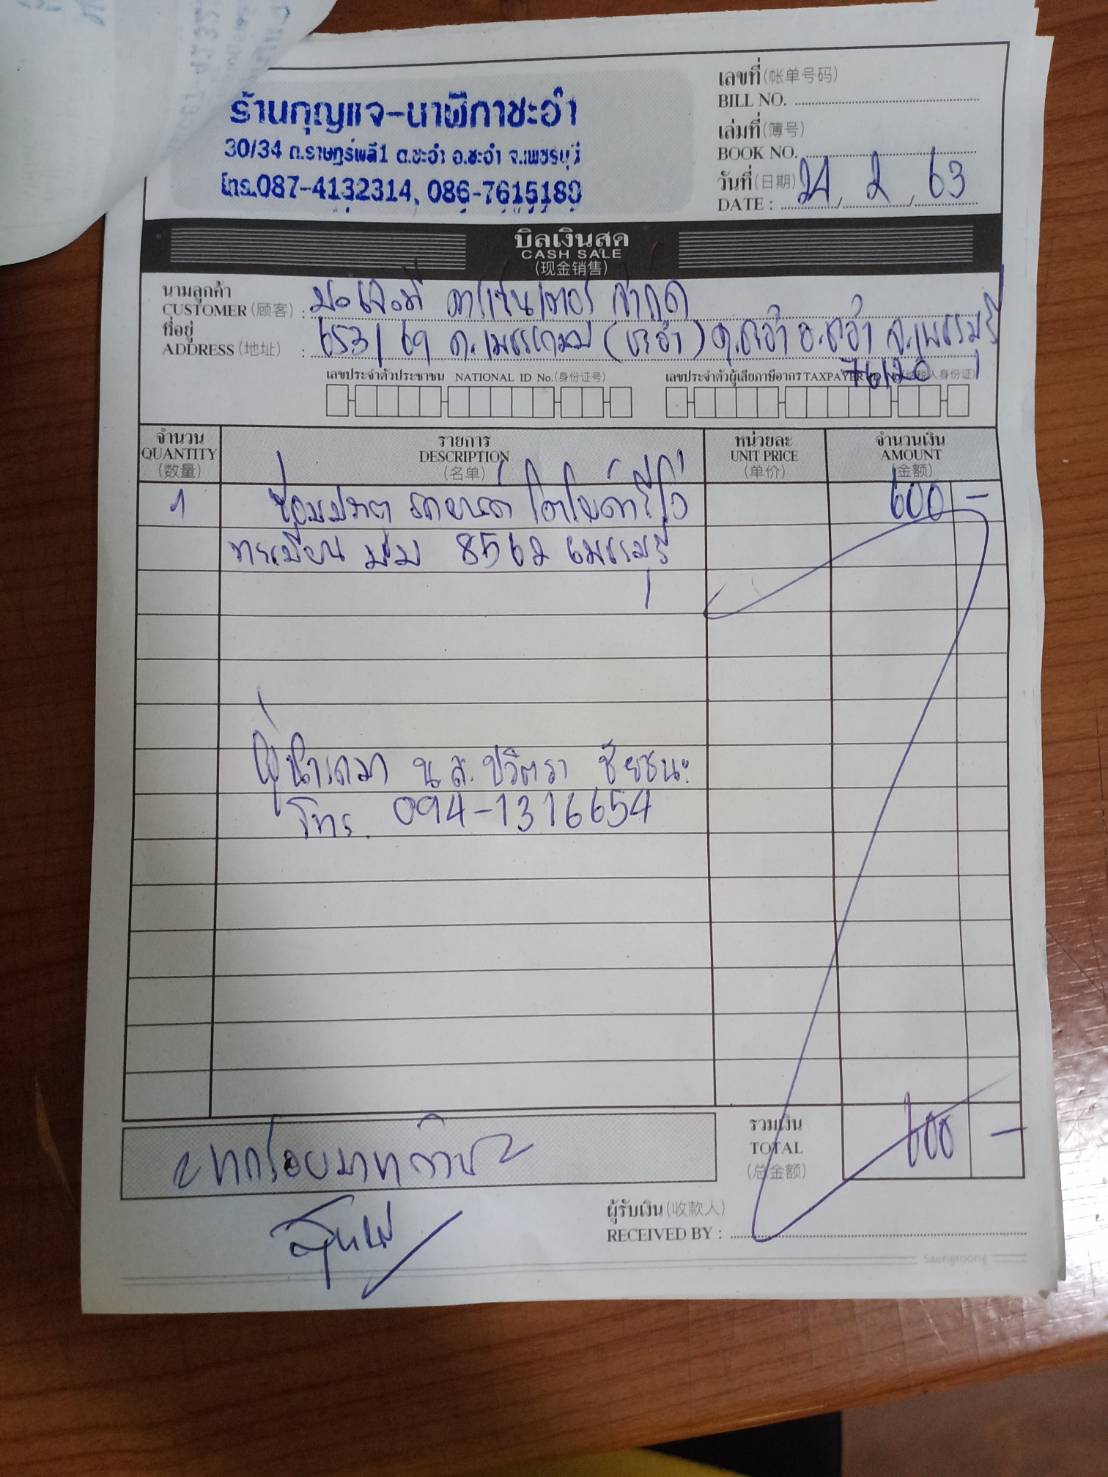 ร้านกุญแจ-นาฬิกาชะอำ
30/34 ถ.ราษฎร์พลี1 ต.ชะอำ อ.ชะอำ จ.เพชรบุรี
โทร.087-4132314, 086-7615180
เลขที่ (帐单号码)
BILL NO.
เล่มที่ (簿号)
BOOK NO.
วันที่ (日期)
DATE : 24 / 2 / 63
บิลเงินสด
CASH SALE
(现金销售)
นามลูกค้า
CUSTOMER (顾客) : จำกัด
ที่อยู่
ADDRESS (地址) : 653/69 ถ.เพชรเกษม (ชะอำ) ต.ชะอำ อ.ชะอำ จ.เพชรบุรี
76120
เลขประจำตัวประชาชน NATIONAL ID No. (身份证号)
เลขประจำตัวผู้เสียภาษีอากร TAXPAYER
จำนวน รายการ หน่วยละ จำนวนเงิน
QUANTITY DESCRIPTION UNIT PRICE AMOUNT
(数量) (名单) (单价) (金额)
1 ซ่อมประตู รถยนต์ 600 -
ทะเบียน 8562 เพชรบุรี
น.ส. ปวิตรา ชัยชนะ
โทร. 094-1316654
รวมเงิน
TOTAL 600 -
(总金额)
หกร้อยบาทถ้วน
ผู้รับเงิน (收款人)
RECEIVED BY :